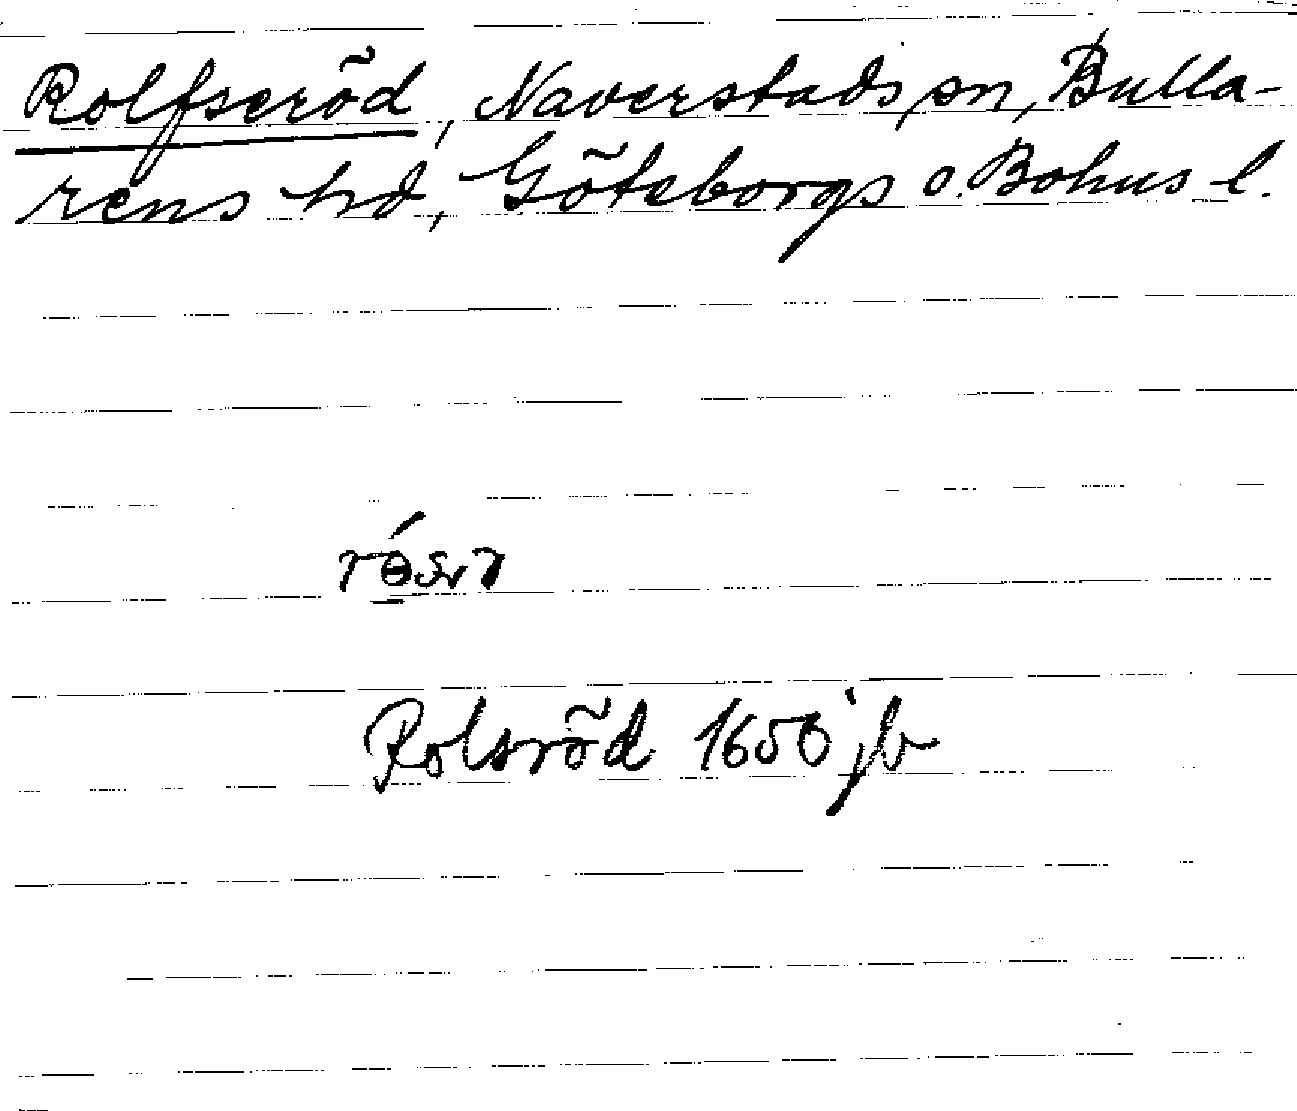 Rolfseröd, Naverstads sn, Bulla-
rens hd, Göteborgs o. Bohus l.
Rolsröd 1650 jb